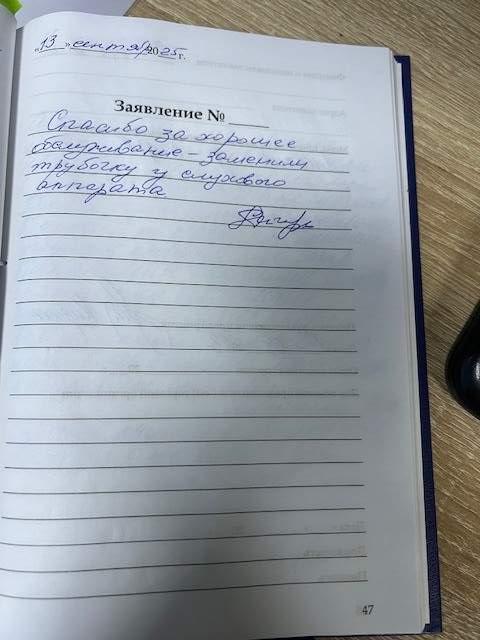 «13» сентября 2025 г.
Заявление № ____
Спасибо за хорошее
обслуживание – заменили
трубочку у слухового
аппарата
47